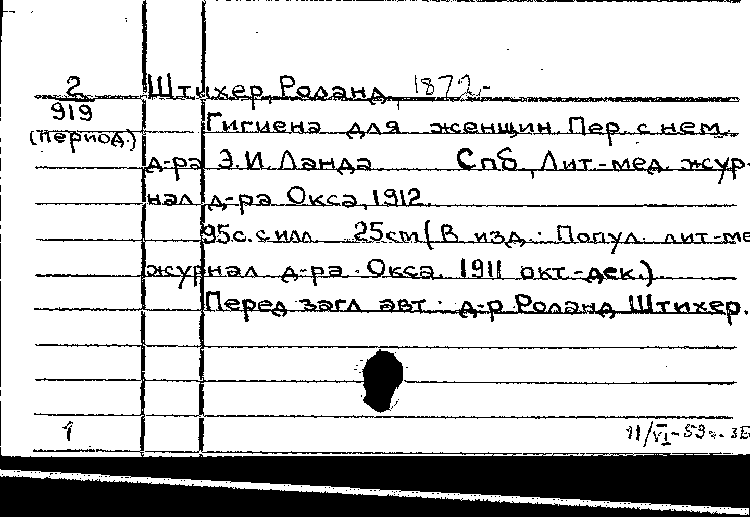 2 Штихер, Роланд, 1872-
919
(период.) Гигиена для женщин. Пер. с нем.
д-ра Э.И. Ланда Спб, Лит.-мед. жур-
нал д-ра Окса, 1912.
95с. с илл. 25cm (В изд.: Попул. лит-ме
журнал д-ра Окса. 1911 окт.-дек.)
Перед загл. авт.: д-р Роланд Штихер.
1 11/VI-59г.